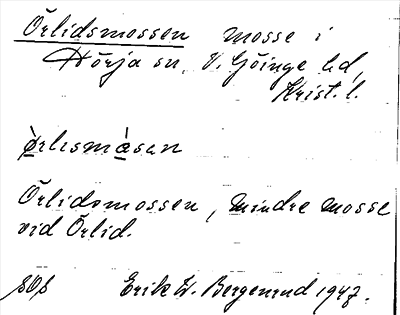 Örlidsmossen mosse i
Hörja sn, V. Göinge hd,
Krist. l.
ọ̀rlɩsmɑ̀san
Örlidsmossen, mindre mosse
vid Örlid.
Erik W. Bergenrud 1947.